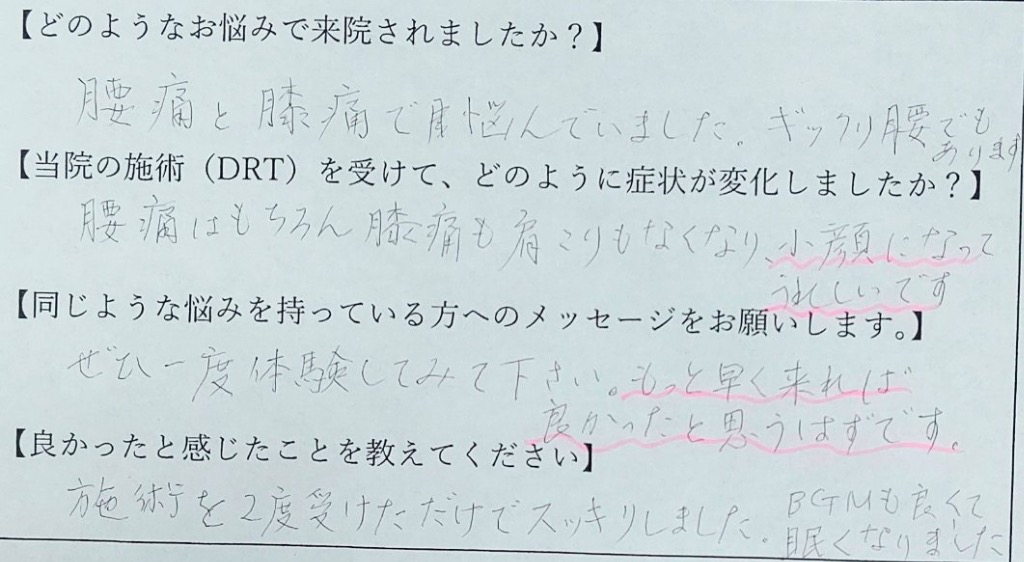 【どのようなお悩みで来院されましたか？】
腰痛と膝痛で悩んでいました。ギックリ腰でも
あります
【当院の施術（DRT）を受けて、どのように症状が変化しましたか？】
腰痛はもちろん膝痛も肩こりもなくなり、小顔になって
うれしいです
【同じような悩みを持っている方へのメッセージをお願いします。】
ぜひ一度体験してみて下さい。もっと早く来れば
良かったと思うはずです。
【良かったと感じたことを教えてください】
施術を2度受けただけでスッキリしました。BGMも良くて
眠くなりました